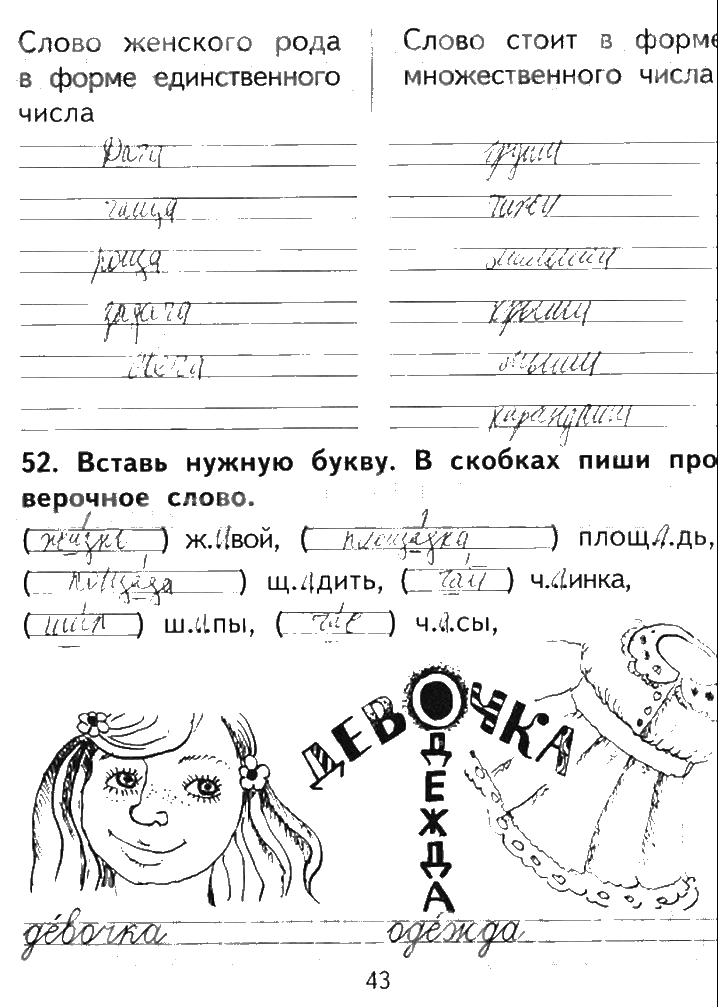 Слово женского рода
в форме единственного
числа
Слово стоит в форме
множественного числа
чаща
груши
роща
задача
крыши
мыши
карандаши
52. Вставь нужную букву. В скобках пиши про
верочное слово.
(жизнь) ж.и.вой, (площадка) площ.а.дь,
(пощада) щ.а.дить, (чай) ч.а.инка,
(шип) ш.и.пы, (час) ч.а.сы,
ДЕВОЧКА
ОДЕЖДА
де́вочка
оде́жда
43